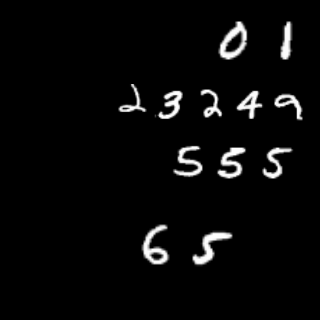 0 1
2 3 2 4 9
5 5 5
6 5